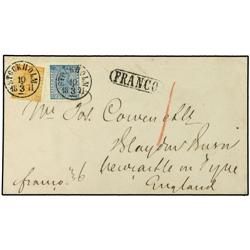 STOCKHOLM
19
3
18 71
STOCKHOLM
19
3
18 71
FRANCO
Mr Jos. Cowen
Blaydon Burn
Newcastle on Tyne
England
franco